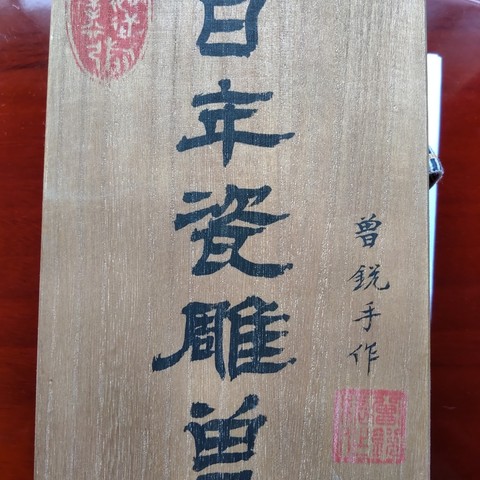 百年瓷雕曾
曾鋭手作